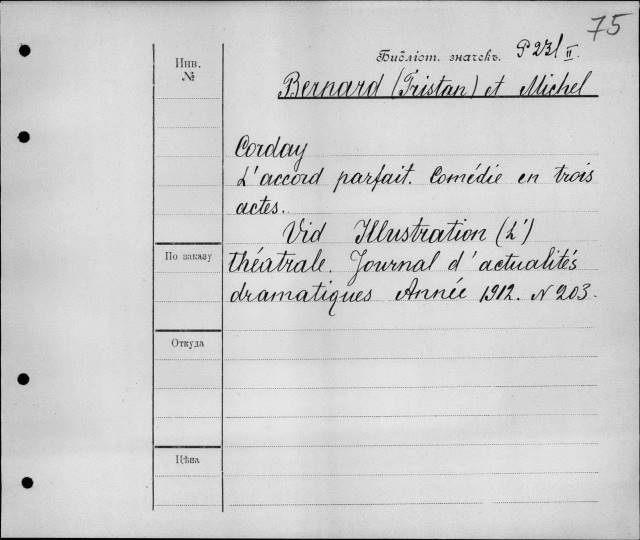 75
Библіот. значекъ. P 23/II.
Инв. №
Bernard (Tristan) et Michel
Corday
L'accord parfait. Comédie en trois
actes.
Vid Illustration (L')
По заказу
théatrale. Journal d'actualités
dramatiques Année 1912. N 203.
Откуда
Цѣна